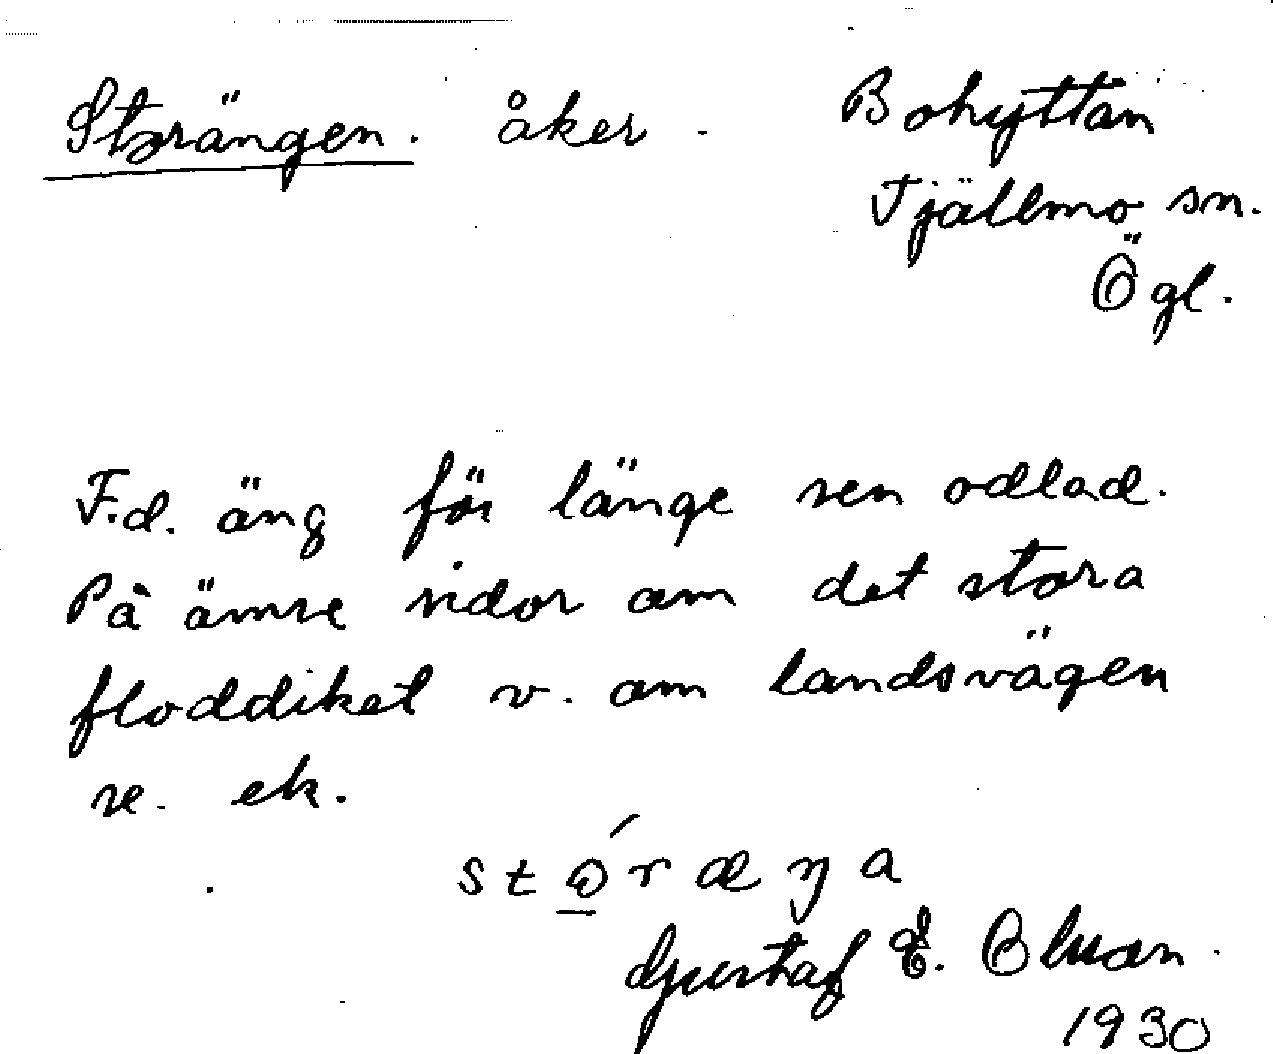 Storängen. åker - Bohyttan
Tjällmo sn.
Ögl.
F.d. äng för länge sen odlad.
På ömse sidor om det stora
floddiket v. om landsvägen
se. ek.
Gustaf E. Olsson.
1930